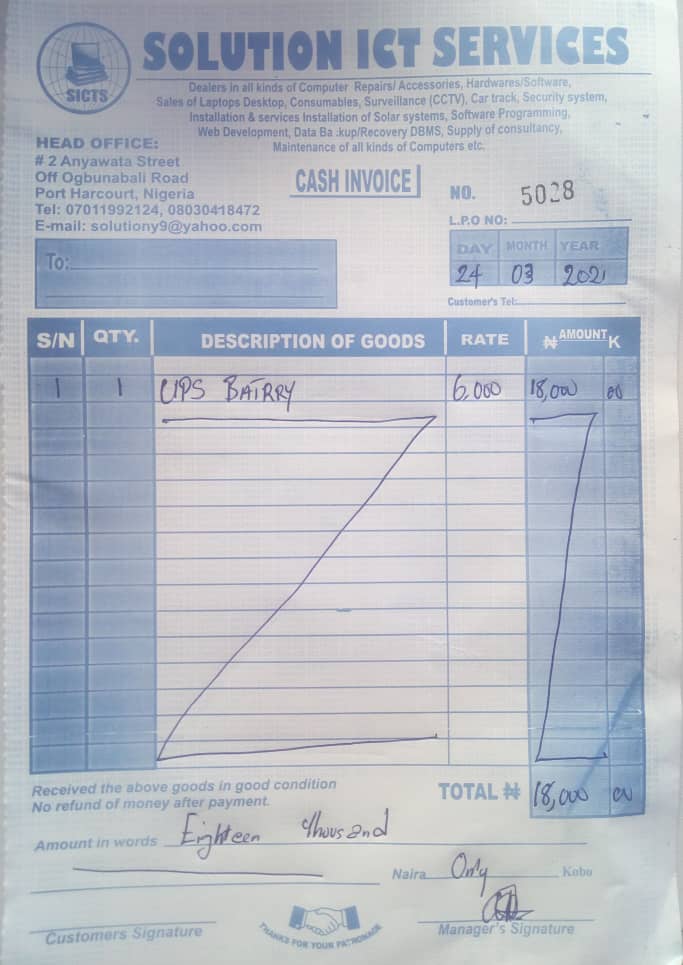 SICTS
SOLUTION ICT SERVICES
Dealers in all kinds of Computer Repairs/ Accessories, Hardwares/Software,
Sales of Laptops Desktop, Consumables, Surveillance (CCTV), Car track, Security system,
Installation & services Installation of Solar systems, Software Programming,
Web Development, Data Ba .kup/Recovery DBMS, Supply of consultancy,
Maintenance of all kinds of Computers etc.
HEAD OFFICE:
# 2 Anyawata Street
Off Ogbunabali Road
Port Harcourt, Nigeria
Tel: 07011992124, 08030418472
E-mail: solutiony9@yahoo.com
CASH INVOICE
NO. 5028
L.P.O NO:
DAY MONTH YEAR
24 03 2021
To:
Customer's Tel:
S/N QTY. DESCRIPTION OF GOODS RATE ₦ AMOUNT K
1 1 UPS BATRRY 6,000 18,000 00
Received the above goods in good condition
No refund of money after payment.
TOTAL ₦ 18,000 00
Amount in words Eighteen thousand
Naira Only Kobo
Customers Signature
THANKS FOR YOUR PATRONAGE
Manager's Signature